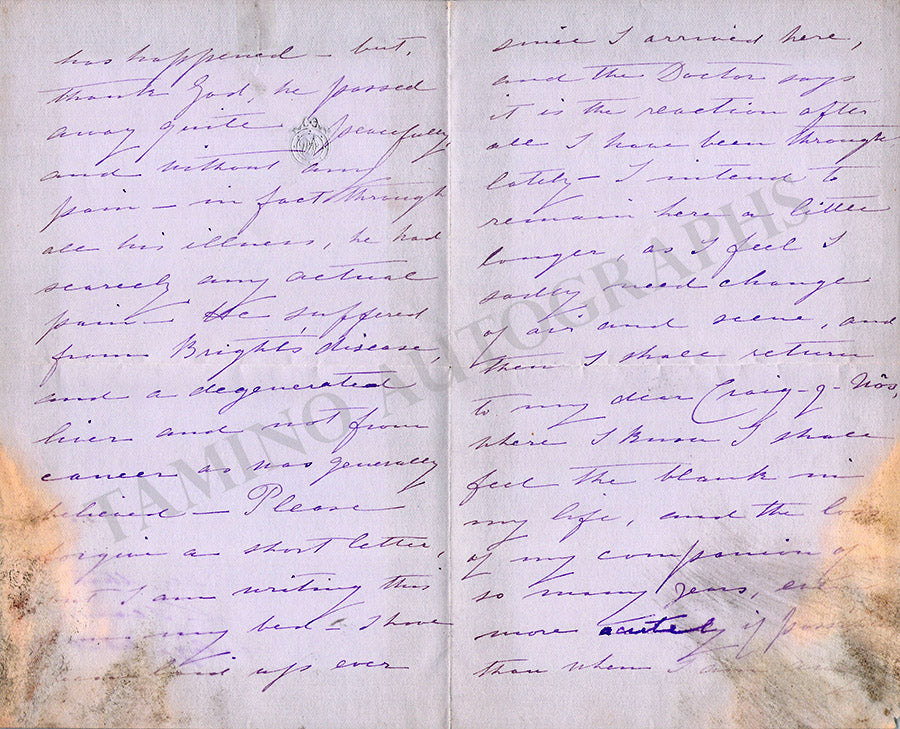 has happened – but,
thank God, he passed
away quite peacefully,
and without any
pain – in fact through
all his illness, he had
scarcely any actual
pain – He suffered
from Bright's disease,
and a degenerated
liver and not from
cancer as was generally
believed – Please
forgive a short letter,
but I am writing this
my bed – I have
laid up ever
since I arrived here,
and the Doctor says
it is the reaction after
all I have been through
lately – I intend to
remain here a little
longer, as I feel I
sadly need change
of air and scene, and
then I shall return
to my dear Craig-y-Nôs,
where I know I shall
feel the blank in
my life, and the loss
of my companion of
so many years,
more acutely if
than when I
TAMINO AUTOGRAPHS